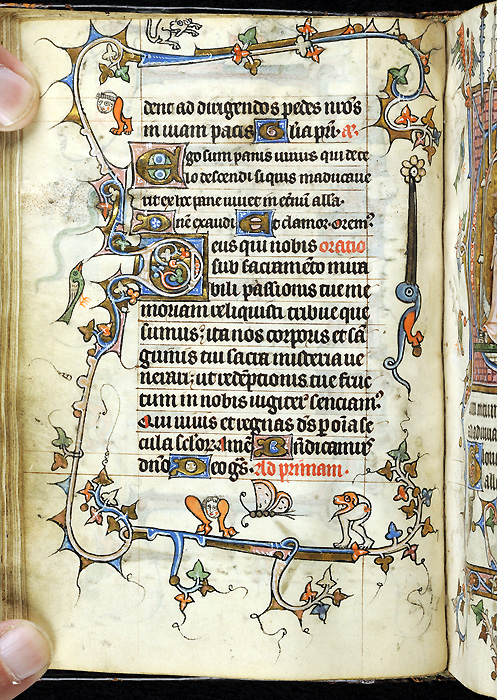 dent ad dirigendos pedes nr̃os
in uiam pacis Gl̃ia pr̃i
Ego sum panis uiuus qui de ce
lo descendi siquis manducaue
rit ex hoc pane uiuet in et̃nũ alla.
Dñe exaudi Et clamor. orem9
Deus qui nobis oratio
sub sacramẽto mira
bili passionis tue me
moriam reliquisti tribue que
sumus; ita nos corporis et sã
guinis tui sacra misteria ue
nerari; ut redẽptionis tue fruc
tum in nobis iugiter senciam9
Qui uiuis et regnas dš p̃ oĩa se
cula sclõr. Amẽ. Bñdicamus
dño Deo gš. Ad primam.